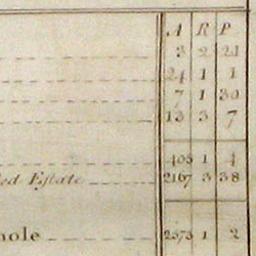 A R P
3 2 21
24 1 1
7 1 30
13 3 7
405 1 4
ed Estate 2167 3 38
hole 2573 1 2